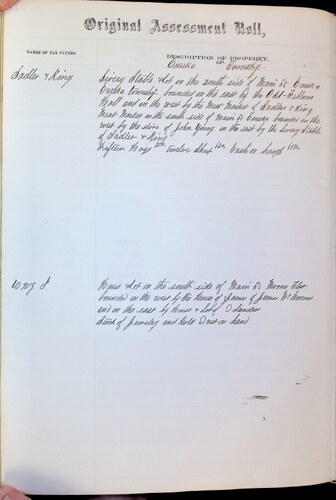 Original Assessment Roll,
NAMES OF TAX PAYERS.
DESCRIPTION OF PROPERTY.
Eureka Township
Sadler & King
Livery Stable & Lot on the south side of Main St Eureka
Eureka township bounded on the east by the Odd Fellows
Hall and on the west by the Meat Market of Sadler & King
Meat Market on the south side of Main St Eureka bounded on the
west by the store of John Young on the east by the Livery Stable
of Sadler & King
Fifteen Hogs twelve Cash on hand
House & Lot on the south side of Main St
bounded on the west by the House of James
and on the east by House & Lot of
Stock of Jewelry and Gold Dust on hand